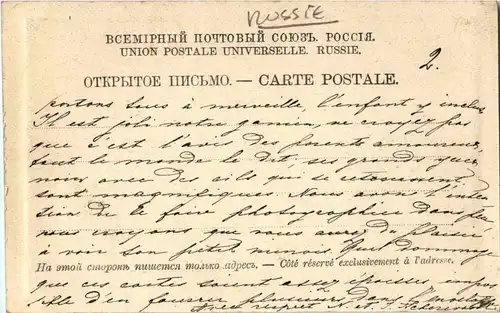 RUSSIE
ВСЕМІРНЫЙ ПОЧТОВЫЙ СОЮЗЪ. РОССІЯ.
UNION POSTALE UNIVERSELLE. RUSSIE.
2.
ОТКРЫТОЕ ПИСЬМО. — CARTE POSTALE.
portons tous à merveille, l'enfant y inclus
Il est joli notre gamin, ne croyez pas
que c'est l'avis des parents amoureux,
tout le monde le dit, ses grands yeux
noirs avec des cils qui se retournent
sont magnifiques. Nous avons l'inten
tion de le faire photographier dans peu
nous croyons que vous aurez du plaisir
à voir son petit minois. Quel dommage
На этой сторонѣ пишется только адресъ. — Côté réservé exclusivement à l'adresse.
que ces cartes soient assez épaisses, impos
sible d'en fourrer plusieurs dans
avec respect N. et J.